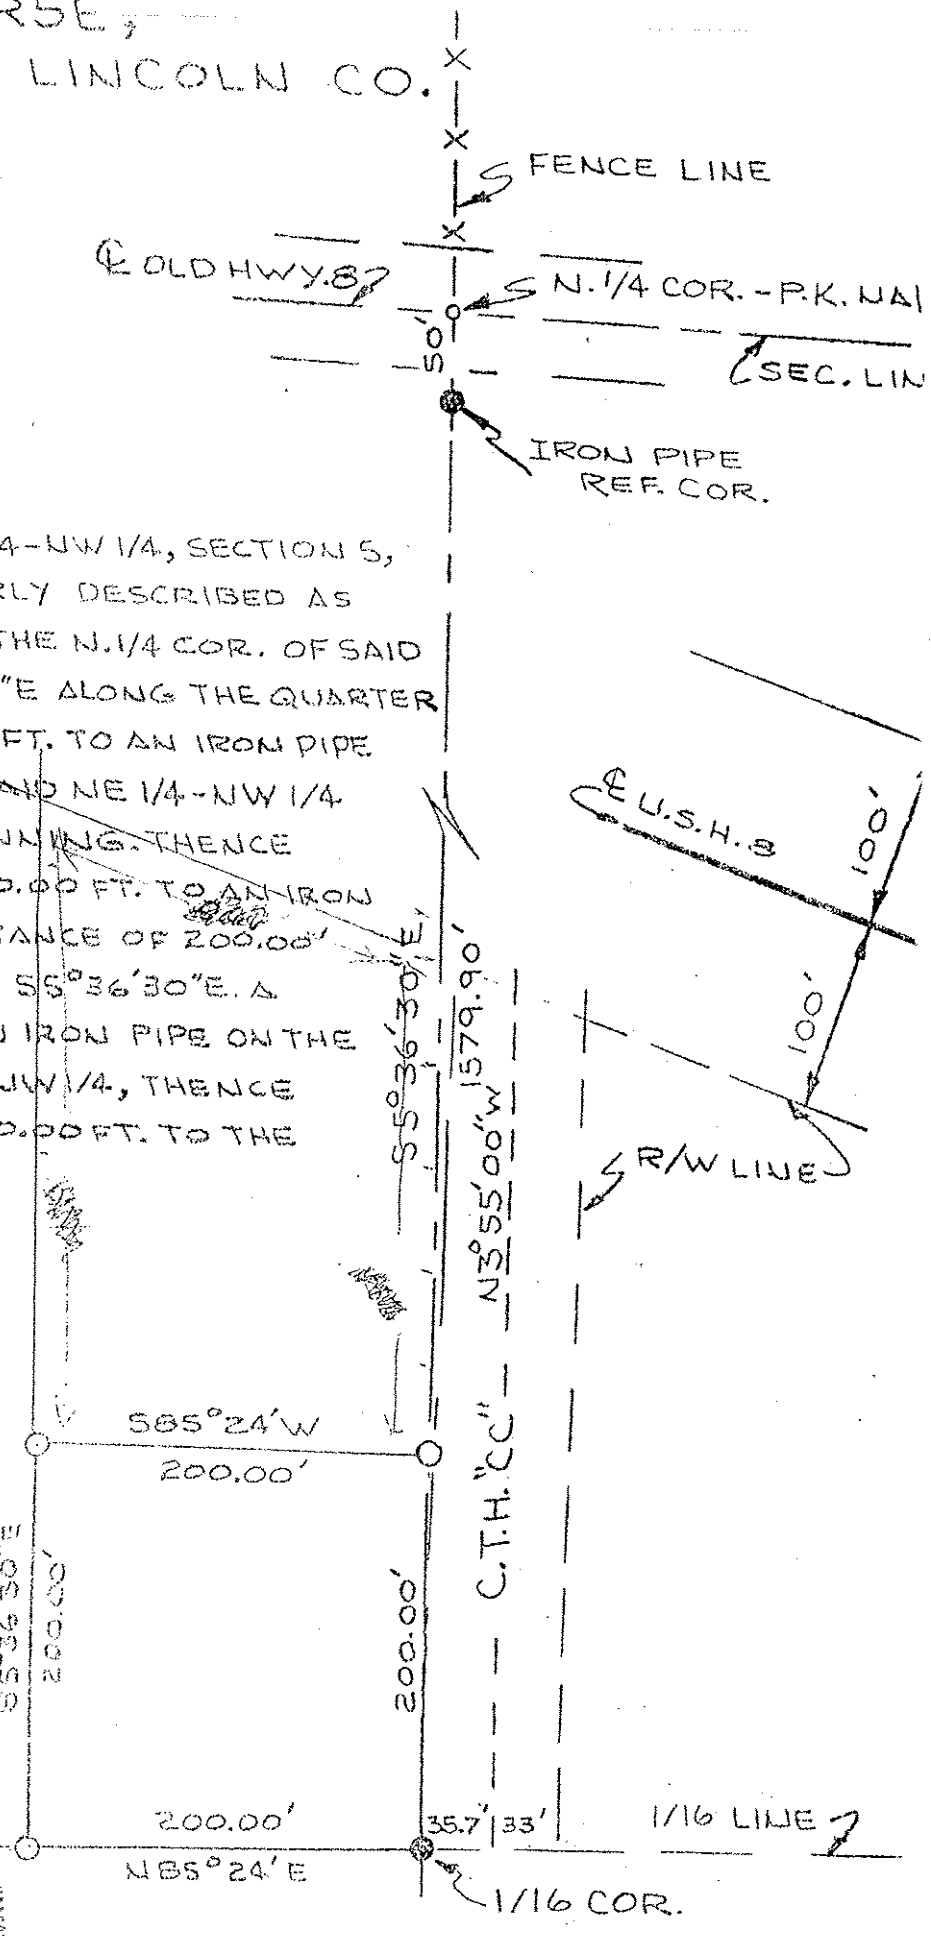 RSE,
LINCOLN CO.
FENCE LINE
℄ OLD HWY. 8
N. 1/4 COR. - P.K. NAI
50'
SEC. LIN
IRON PIPE
REF. COR.
4-NW 1/4, SECTION 5,
RLY DESCRIBED AS
THE N. 1/4 COR. OF SAID
"E ALONG THE QUARTER
FT. TO AN IRON PIPE
AID NE 1/4-NW 1/4
NNING. THENCE
0.00 FT. TO AN IRON
TANCE OF 200.00'
S5°36'30"E. A
N IRON PIPE ON THE
NW 1/4, THENCE
0.00 FT. TO THE
℄ U.S.H. 8
100'
100'
R/W LINE
S5°36'30"E,
1579.90'
N3°55'00"W
C.T.H. "CC"
S85°24'W
200.00'
S5°36'30"E
200.00'
200.00'
200.00'
N85°24'E
35.7'
33'
1/16 LINE
1/16 COR.